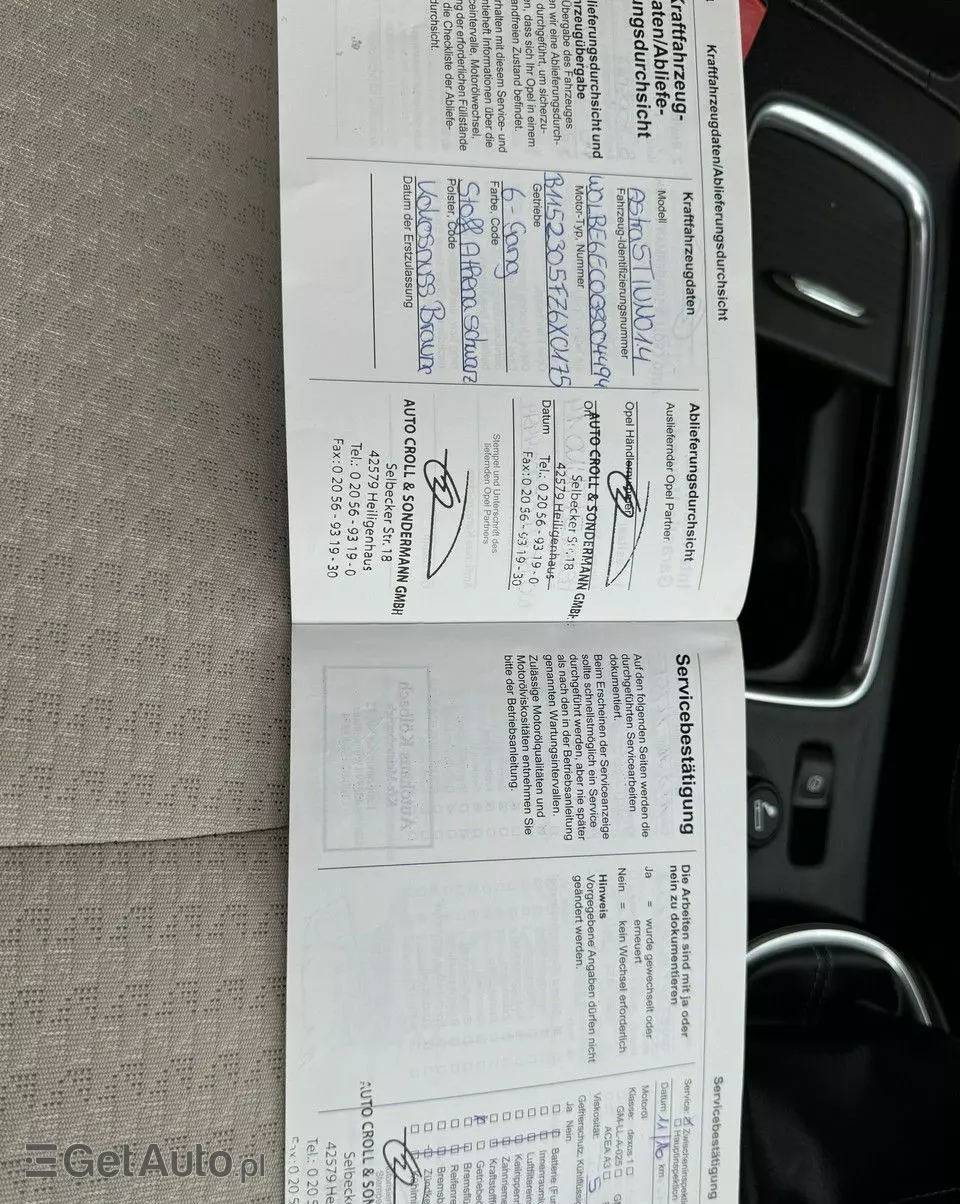 Kraftfahrzeugdaten/Ablieferungsdurchsicht
Kraftfahrzeug-
aten/Abliefe-
ungsdurchsicht
lieferungsdurchsicht und
hrzeugübergabe
Übergabe des Fahrzeuges
en wir eine Ablieferungsdurch-
durchgeführt, um sicherzu-
en, dass sich Ihr Opel in einem
andfreien Zustand befindet.
rhalten mit diesem Service- und
ntieheft Informationen über die
ceintervalle, Motorölwechsel,
ng der erforderlichen Füllstände
die Checkliste der Abliefe-
durchsicht.
Kraftfahrzeugdaten
Modell
Astra 5T TUNO 1.4
Fahrzeug-Identifizierungsnummer
W0LBE6EC0G8004494
Motor-Typ, Nummer
B11523057Z6X0175
Getriebe
6-Gang
Farbe, Code
Stoff Athena Schwarz
Polster, Code
Kokosnuss Braun
Datum der Erstzulassung
Ablieferungsdurchsicht
Ausliefernder Opel Partner
Opel Händlernummer
Ort
AUTO CROLL & SONDERMANN GMBH
Selbecker Str. 18
42579 Heiligenhaus
Datum
Tel.: 0 20 56 - 93 19 - 0
Fax: 0 20 56 - 93 19 - 30
Stempel und Unterschrift des
liefernden Opel Partners
AUTO CROLL & SONDERMANN GMBH
Selbecker Str. 18
42579 Heiligenhaus
Tel.: 0 20 56 - 93 19 - 0
Fax: 0 20 56 - 93 19 - 30
Servicebestätigung
Auf den folgenden Seiten werden die
durchgeführten Servicearbeiten
dokumentiert.
Beim Erscheinen der Serviceanzeige
sollte schnellstmöglich ein Service
durchgeführt werden, aber nie später
als nach den in der Betriebsanleitung
genannten Wartungsintervallen.
Zulässige Motorölqualitäten und
Motorölviskositäten entnehmen Sie
bitte der Betriebsanleitung.
Die Arbeiten sind mit ja oder
nein zu dokumentieren
Ja = wurde gewechselt oder
erneuert
Nein = kein Wechsel erforderlich
Hinweis
Vorgegebene Angaben dürfen nicht
geändert werden.
Servicebestätigung
Service: Zwischeninspekti
Hauptinspektion
Datum 11/16 km
Motoröl
Klasse: dexos 1
GM-LL-A-025
ACEA A3
Viskosität: 5
Gefrierschutz: Kühlflüss
Ja Nein
Batterie (Fu
Innenraum
Luftfilterein
Keilrippen
Zahnriem
Kraftstoff
Getriebe
Bremsflü
Reifenre
Bremsb
Zündke
AUTO CROLL & SON
Selbe
42579 He
Tel.: 0 2
Fax: 0 20 5
GetAuto.pl